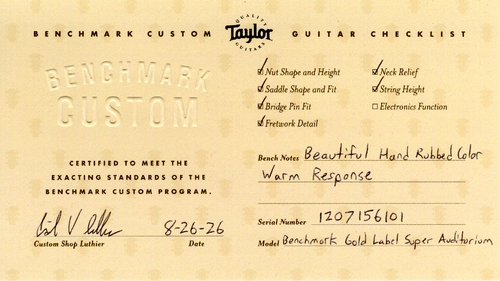 BENCHMARK CUSTOM QUALITY Taylor GUITARS GUITAR CHECKLIST
BENCHMARK
CUSTOM
CERTIFIED TO MEET THE
EXACTING STANDARDS OF THE
BENCHMARK CUSTOM PROGRAM.
8-26-26
Custom Shop Luthier Date
Nut Shape and Height Neck Relief
Saddle Shape and Fit String Height
Bridge Pin Fit Electronics Function
Fretwork Detail
Bench Notes Beautiful Hand Rubbed Color
Warm Response
Serial Number 1207156101
Model Benchmark Gold Label Super Auditorium